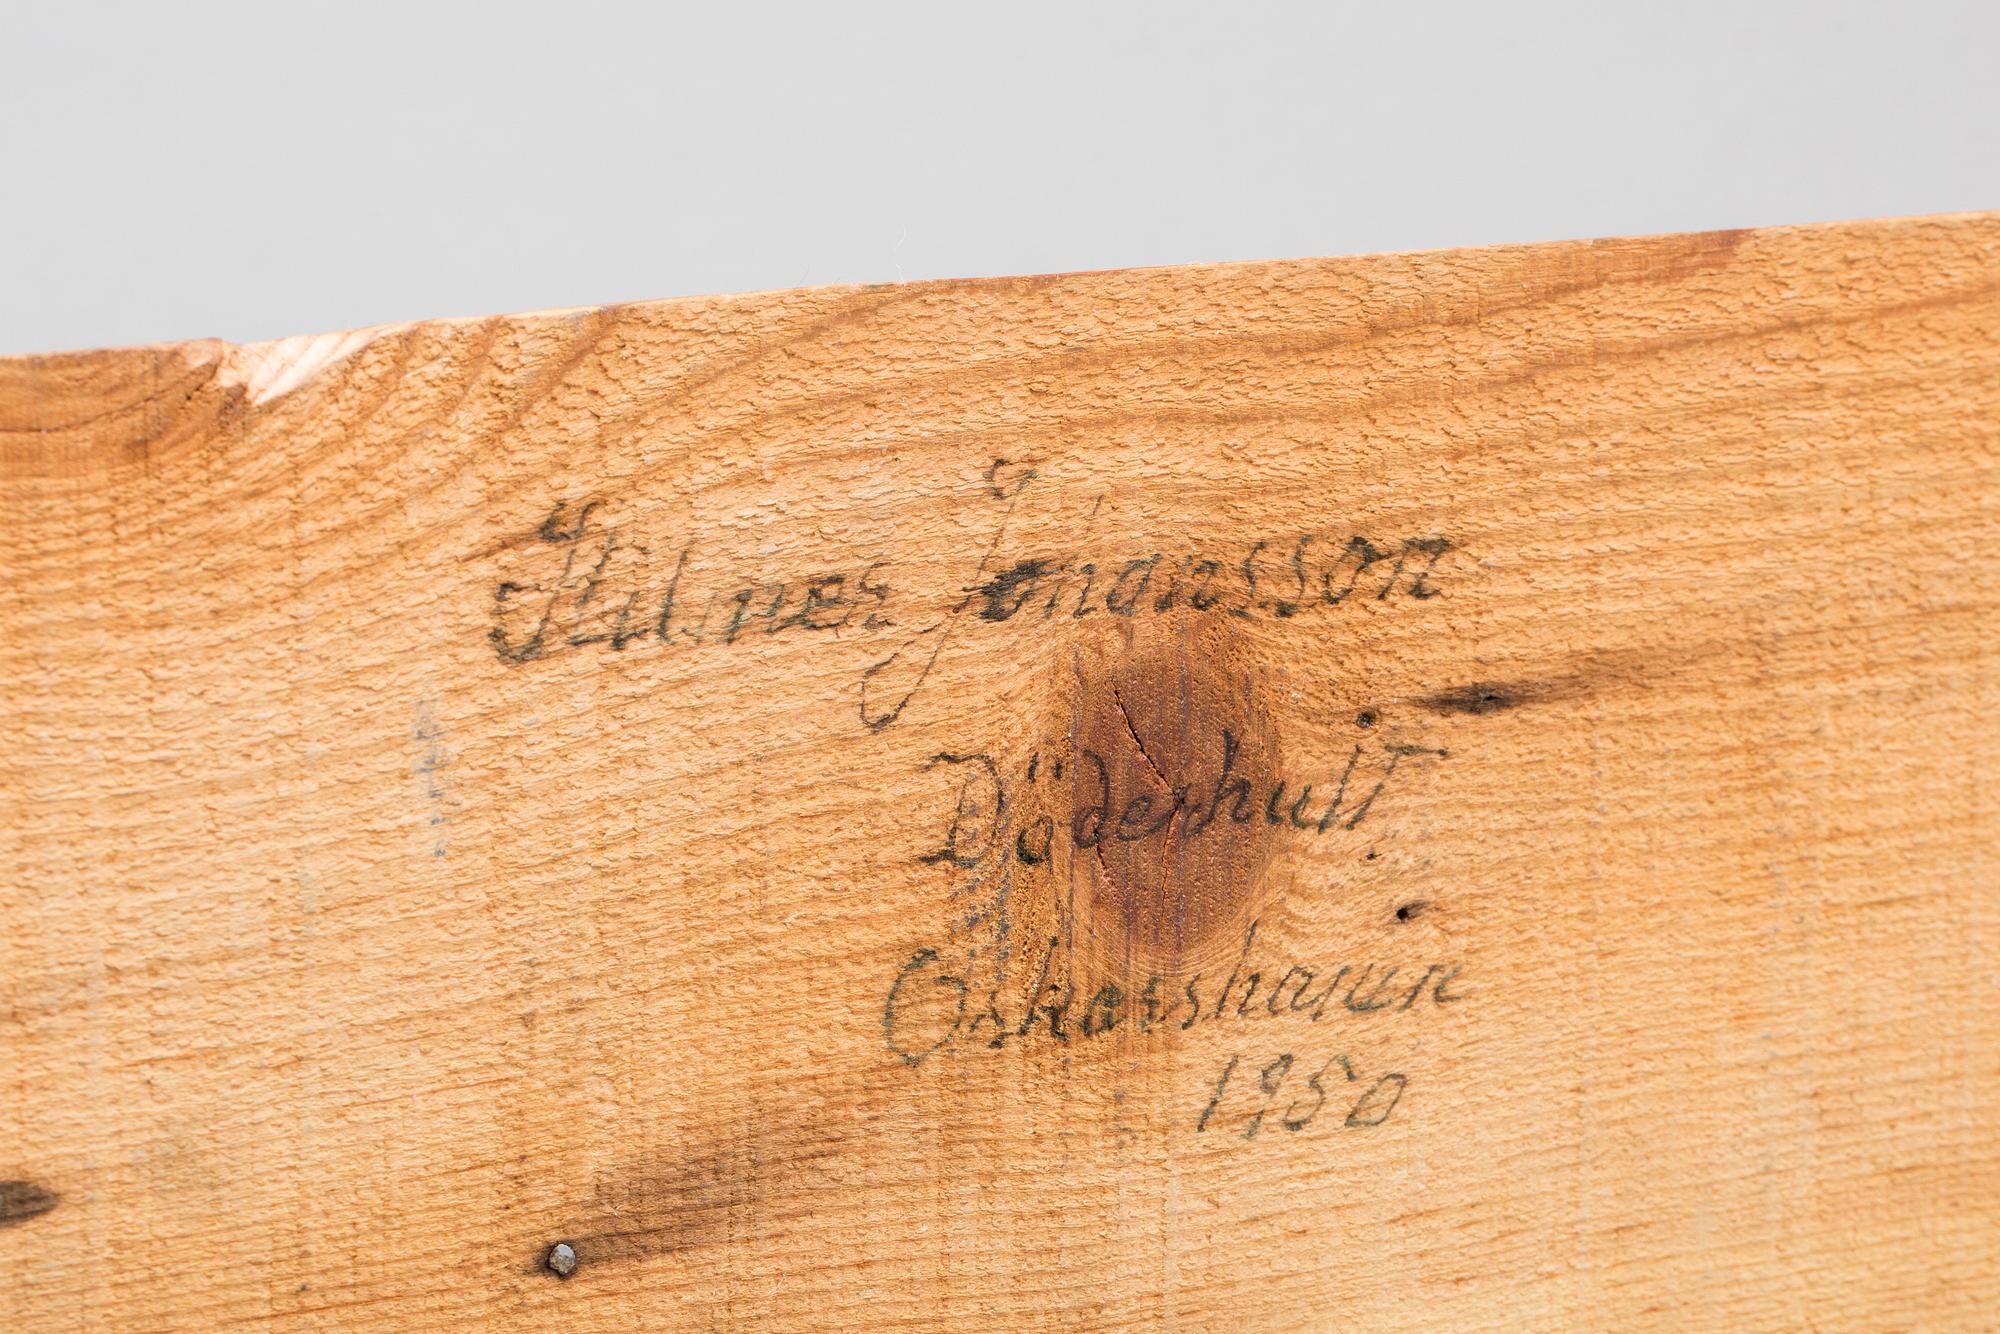 Hilmer Johansson
Döderhult
Oskarshamn
1950